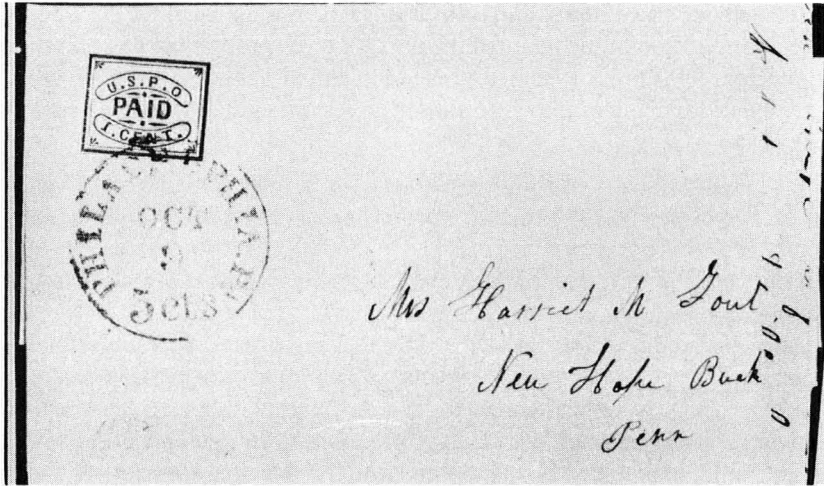 U.S.P.O
PAID
1.CENT.
PHILADELPHIA Pa
OCT
9
5 cts
Mrs Harriet M
New Hope Buck
Penn